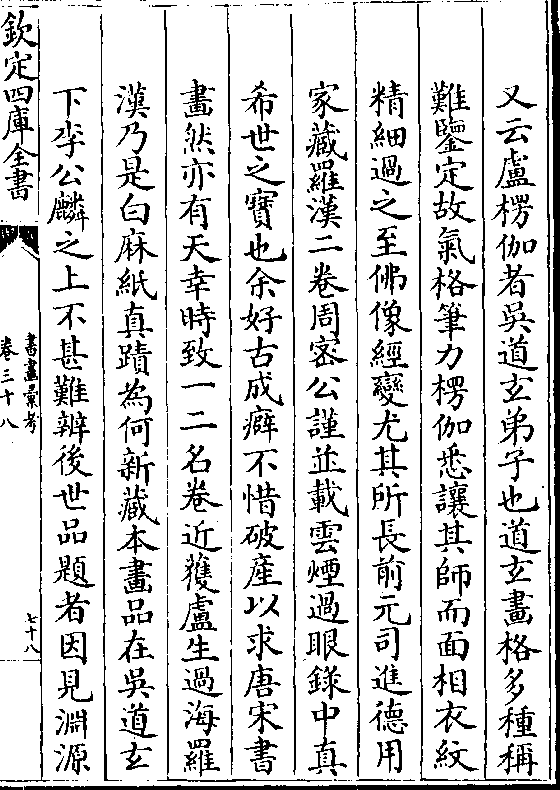 又云盧楞伽者吳道玄弟子也道玄畫格多種稱
難鑒定故氣格筆力楞伽悉讓其師而面相衣紋
精細過之至佛像經變尤其所長前元司進德用
家藏羅漢二卷周密公謹並載雲煙過眼錄中真
希世之寶也余好古成癖不惜破產以求唐宋書
畫然亦有天幸時致一二名卷近獲盧生過海羅
漢乃是白麻紙真蹟為何新藏本畫品在吳道玄
下李公麟之上不甚難辨後世品題者因見淵源
欽定四庫全書
書畫彙考
卷三十八
七十八